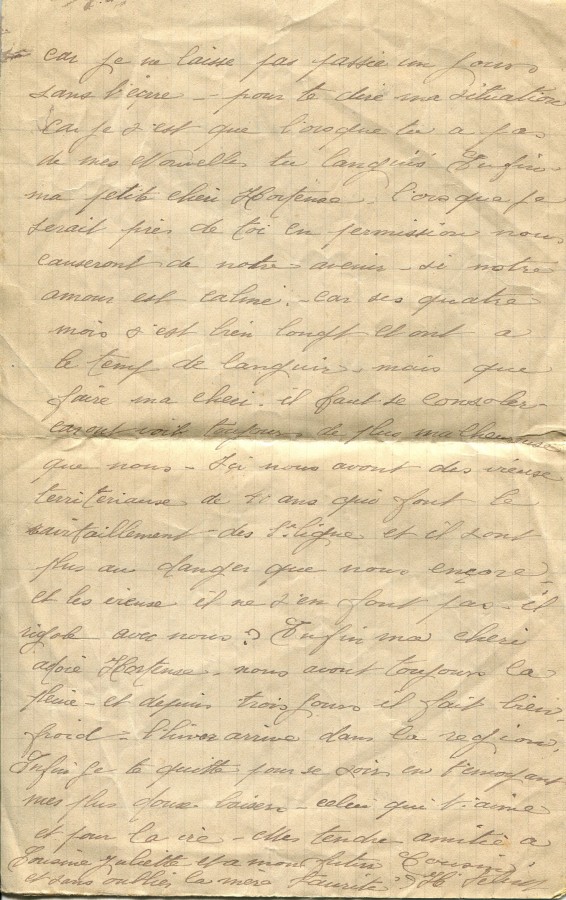 car je ne laisse pas passée un jour
sans t'écrire - pour te dire ma situation
car je s'est que l'orsque tu a pas
de mes Nouvelles tu languis Enfin
ma petite cheri Hortense. l'orsque je
serait près de toi en permission nous
causeront de notre avenir - si notre
amour est calmé. - car ses quatre
mois s'est bien longt et ont a
le temp de languir. mais que
faire ma cheri. il faut se consoler
car ont voit toujours de plus malheureuse
que nous - Içi nous avont des vieuse
territeriause de ans qui font le
ravitaillement - des 1re ligne et il sont
plus au danger que nous encore
et les vieuse il ne s'en font pas - il
rigole avec nous? Enfin ma cheri
adoré Hortense. nous avont toujours la
pluie - et depuis trois jours il fait bien
froid = l'hiver arrive dans la region,
Enfin je te quitte pour se soir en t'envoyant
mes plus doux baisers - celui qui t'aime
et pour la vie - Mes tendre amitié a
Cousine Juliette et a mon futur Cousin
et sans oublier la mère